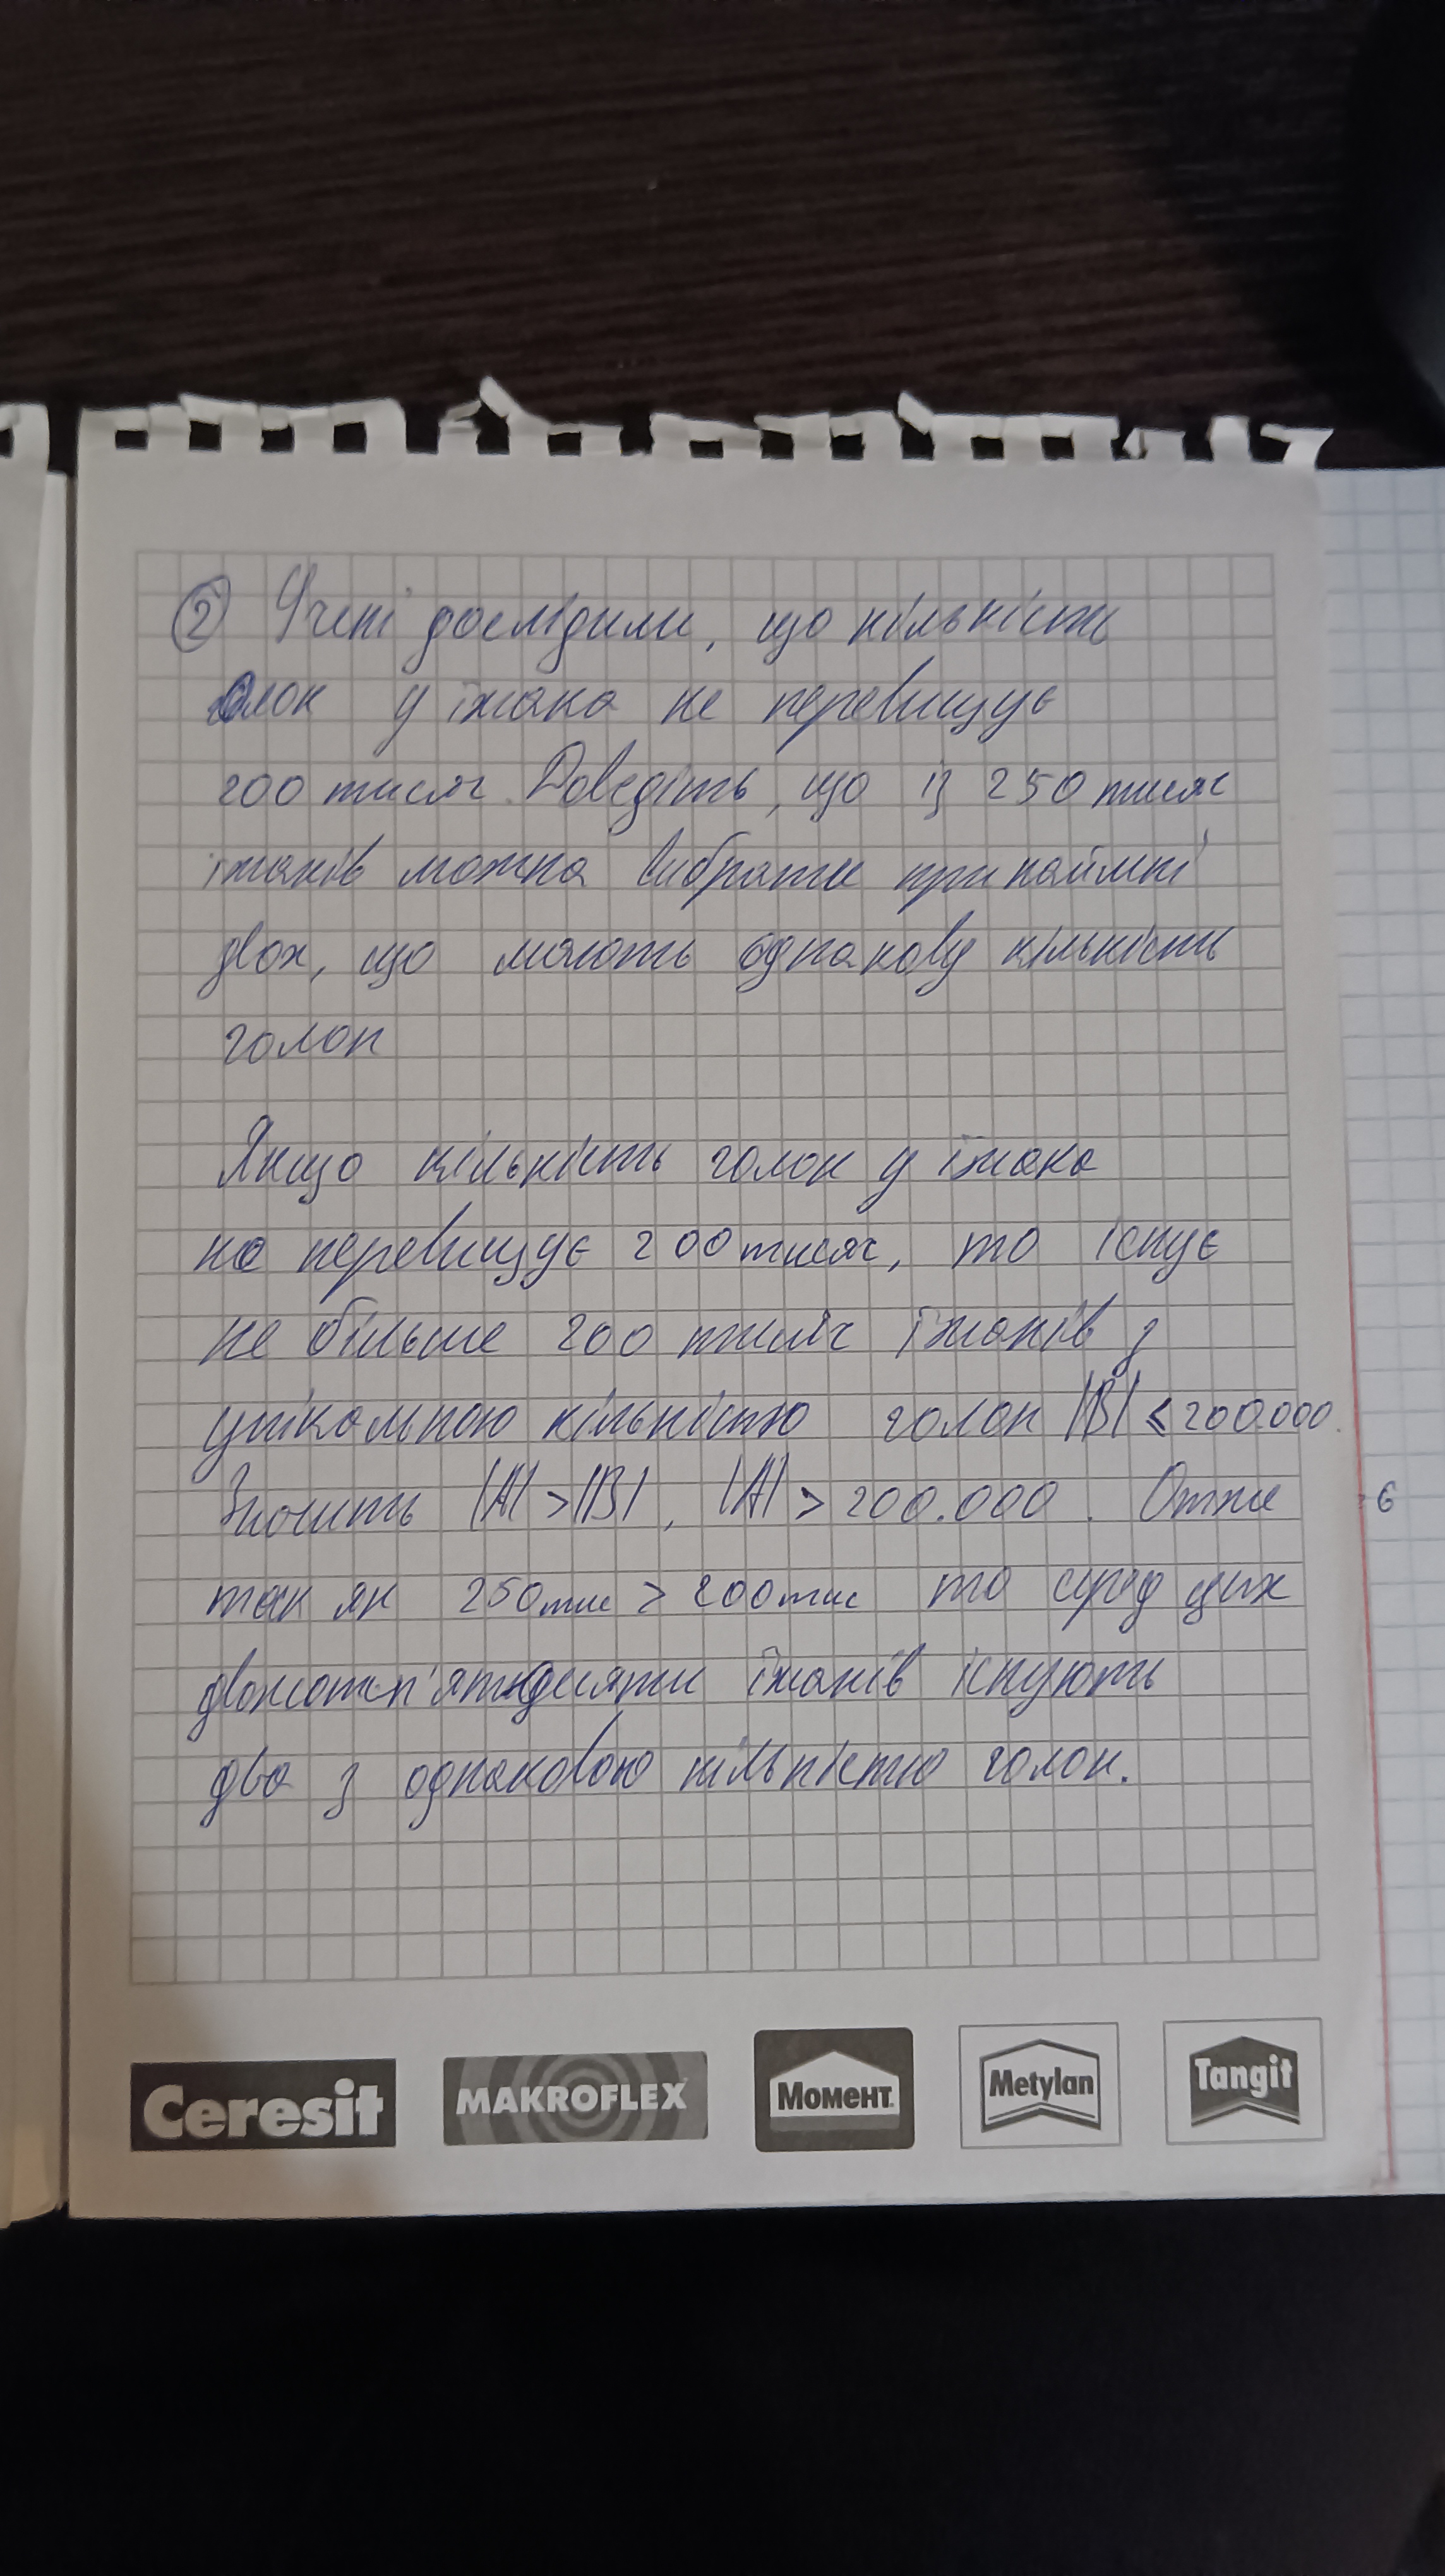 ② Учені дослідили, що кількість
голок у їжака не перевищує
200 тисяч. Доведіть, що із 250 тисяч
їжаків можна вибрати принаймні
двох, що мають однакову кількість
голок
Якщо кількість голок у їжака
не перевищує 200 тисяч, то існує
не більше 200 тисяч їжаків з
унікальною кількістю голок |B| ≤ 200.000.
Значить |A| > |B|, |A| > 200.000. Отже
так як 250 тис > 200 тис то серед цих
двохсотп'ятидесяти їжаків існують
два з однаковою кількістю голок.
6
Ceresit MAKROFLEX Момент Metylan Tangit